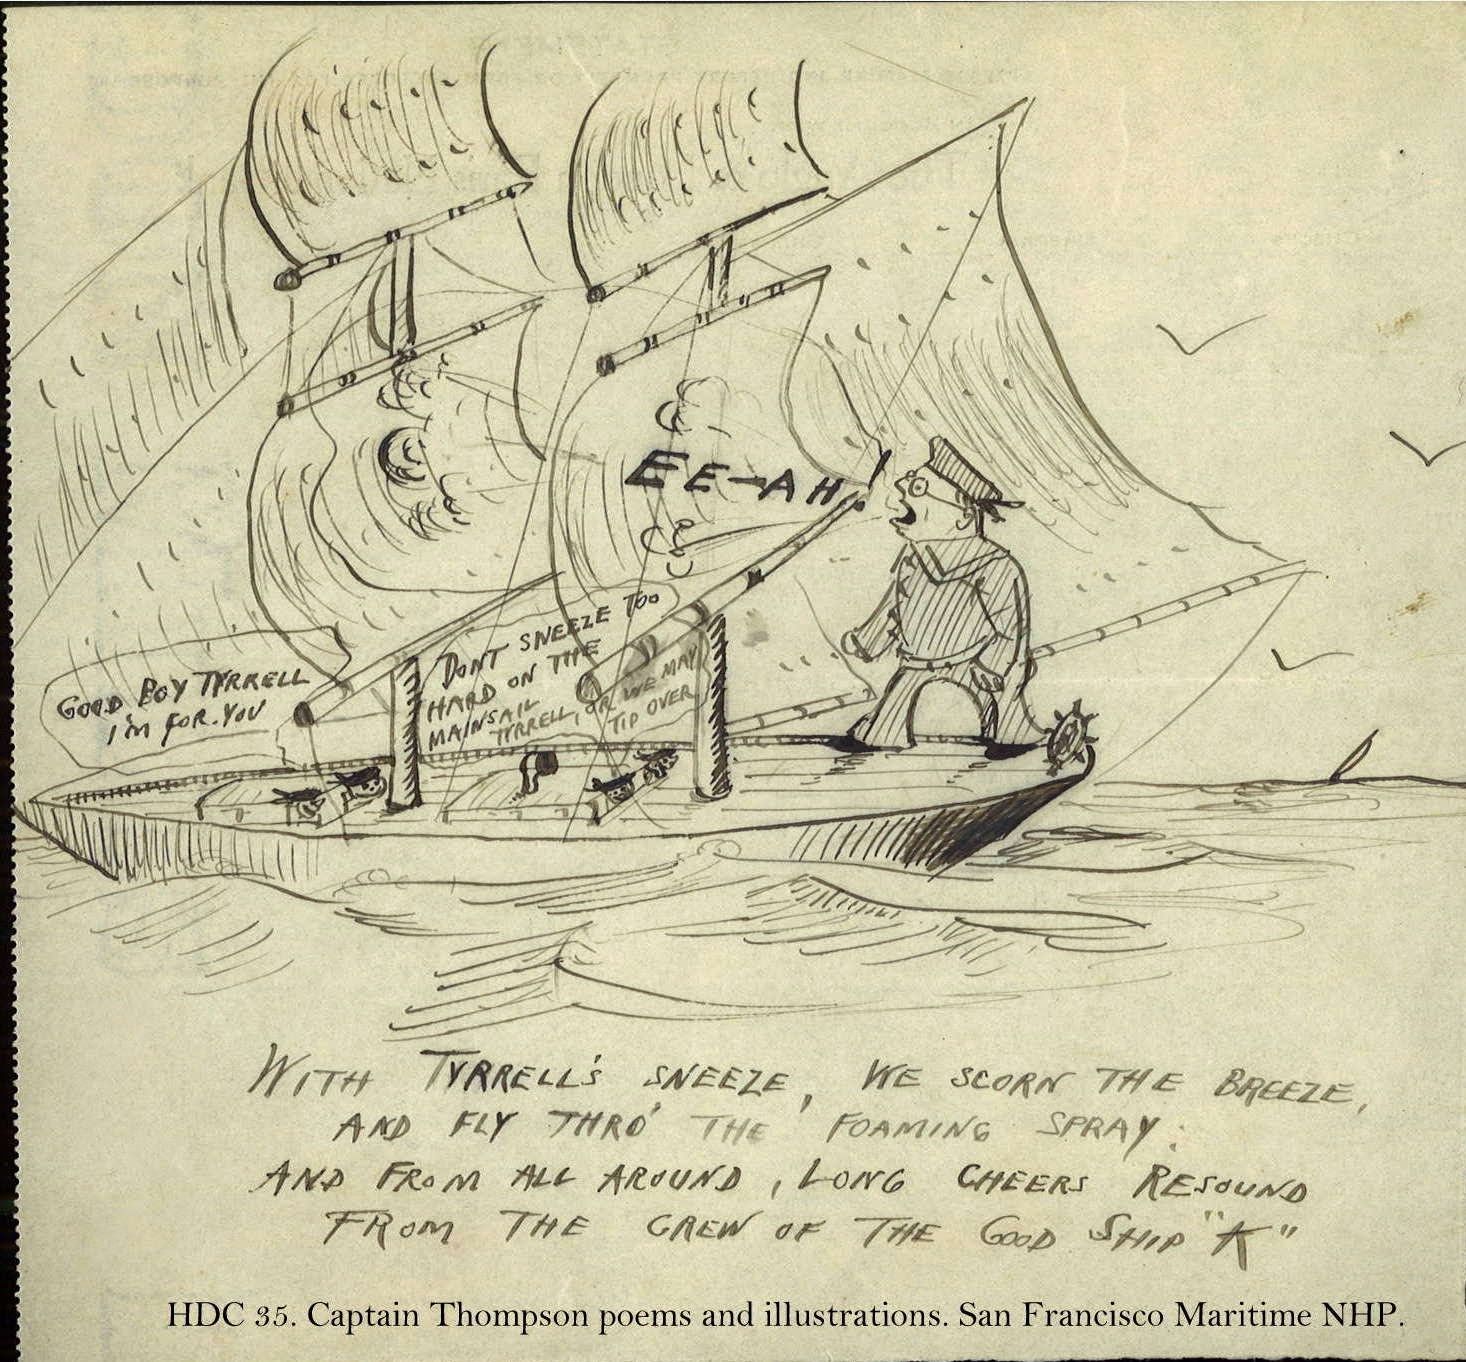 EE-AH!
GOOD BOY TYRRELL
I'M FOR YOU
DONT SNEEZE TOO
HARD ON THE
MAINSAIL
TYRRELL, OR WE MAY
TIP OVER
WITH TYRRELL'S SNEEZE, WE SCORN THE BREEZE,
AND FLY THRO' THE FOAMING SPRAY:
AND FROM ALL AROUND, LONG CHEERS RESOUND
FROM THE CREW OF THE GOOD SHIP "K"
HDC 35. Captain Thompson poems and illustrations. San Francisco Maritime NHP.